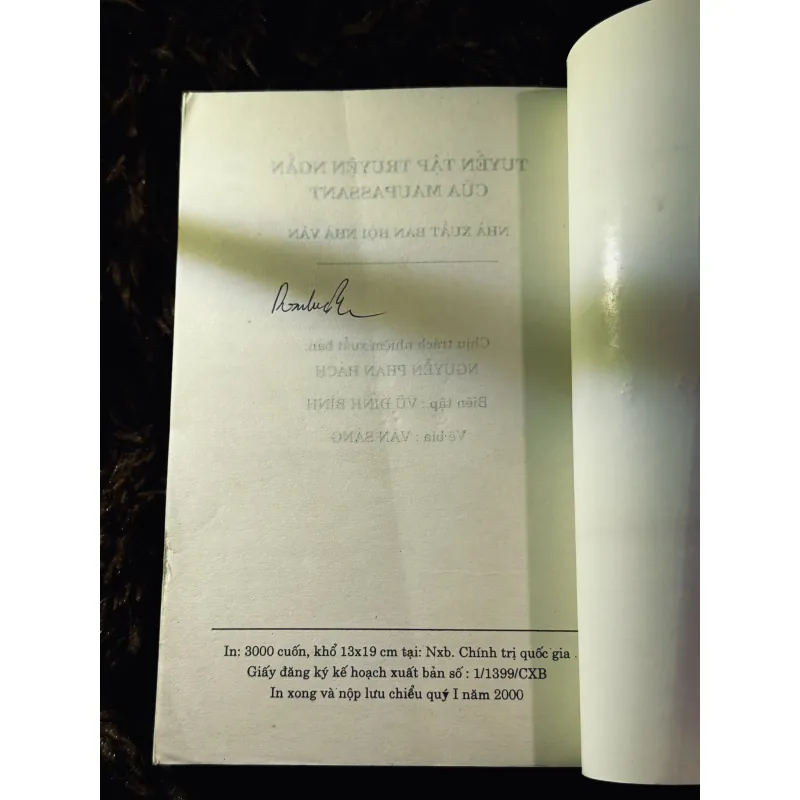 TUYỂN TẬP TRUYỆN NGẮN
CỦA MAUPASSANT
NHÀ XUẤT BẢN HỘI NHÀ VĂN
Chịu trách nhiệm xuất bản:
NGUYỄN PHAN HÁCH
Biên tập : VŨ ĐÌNH BÌNH
Vẽ bìa : VĂN SÁNG
In: 3000 cuốn, khổ 13x19 cm tại: Nxb. Chính trị quốc gia .
Giấy đăng ký kế hoạch xuất bản số : 1/1399/CXB
In xong và nộp lưu chiểu quý I năm 2000